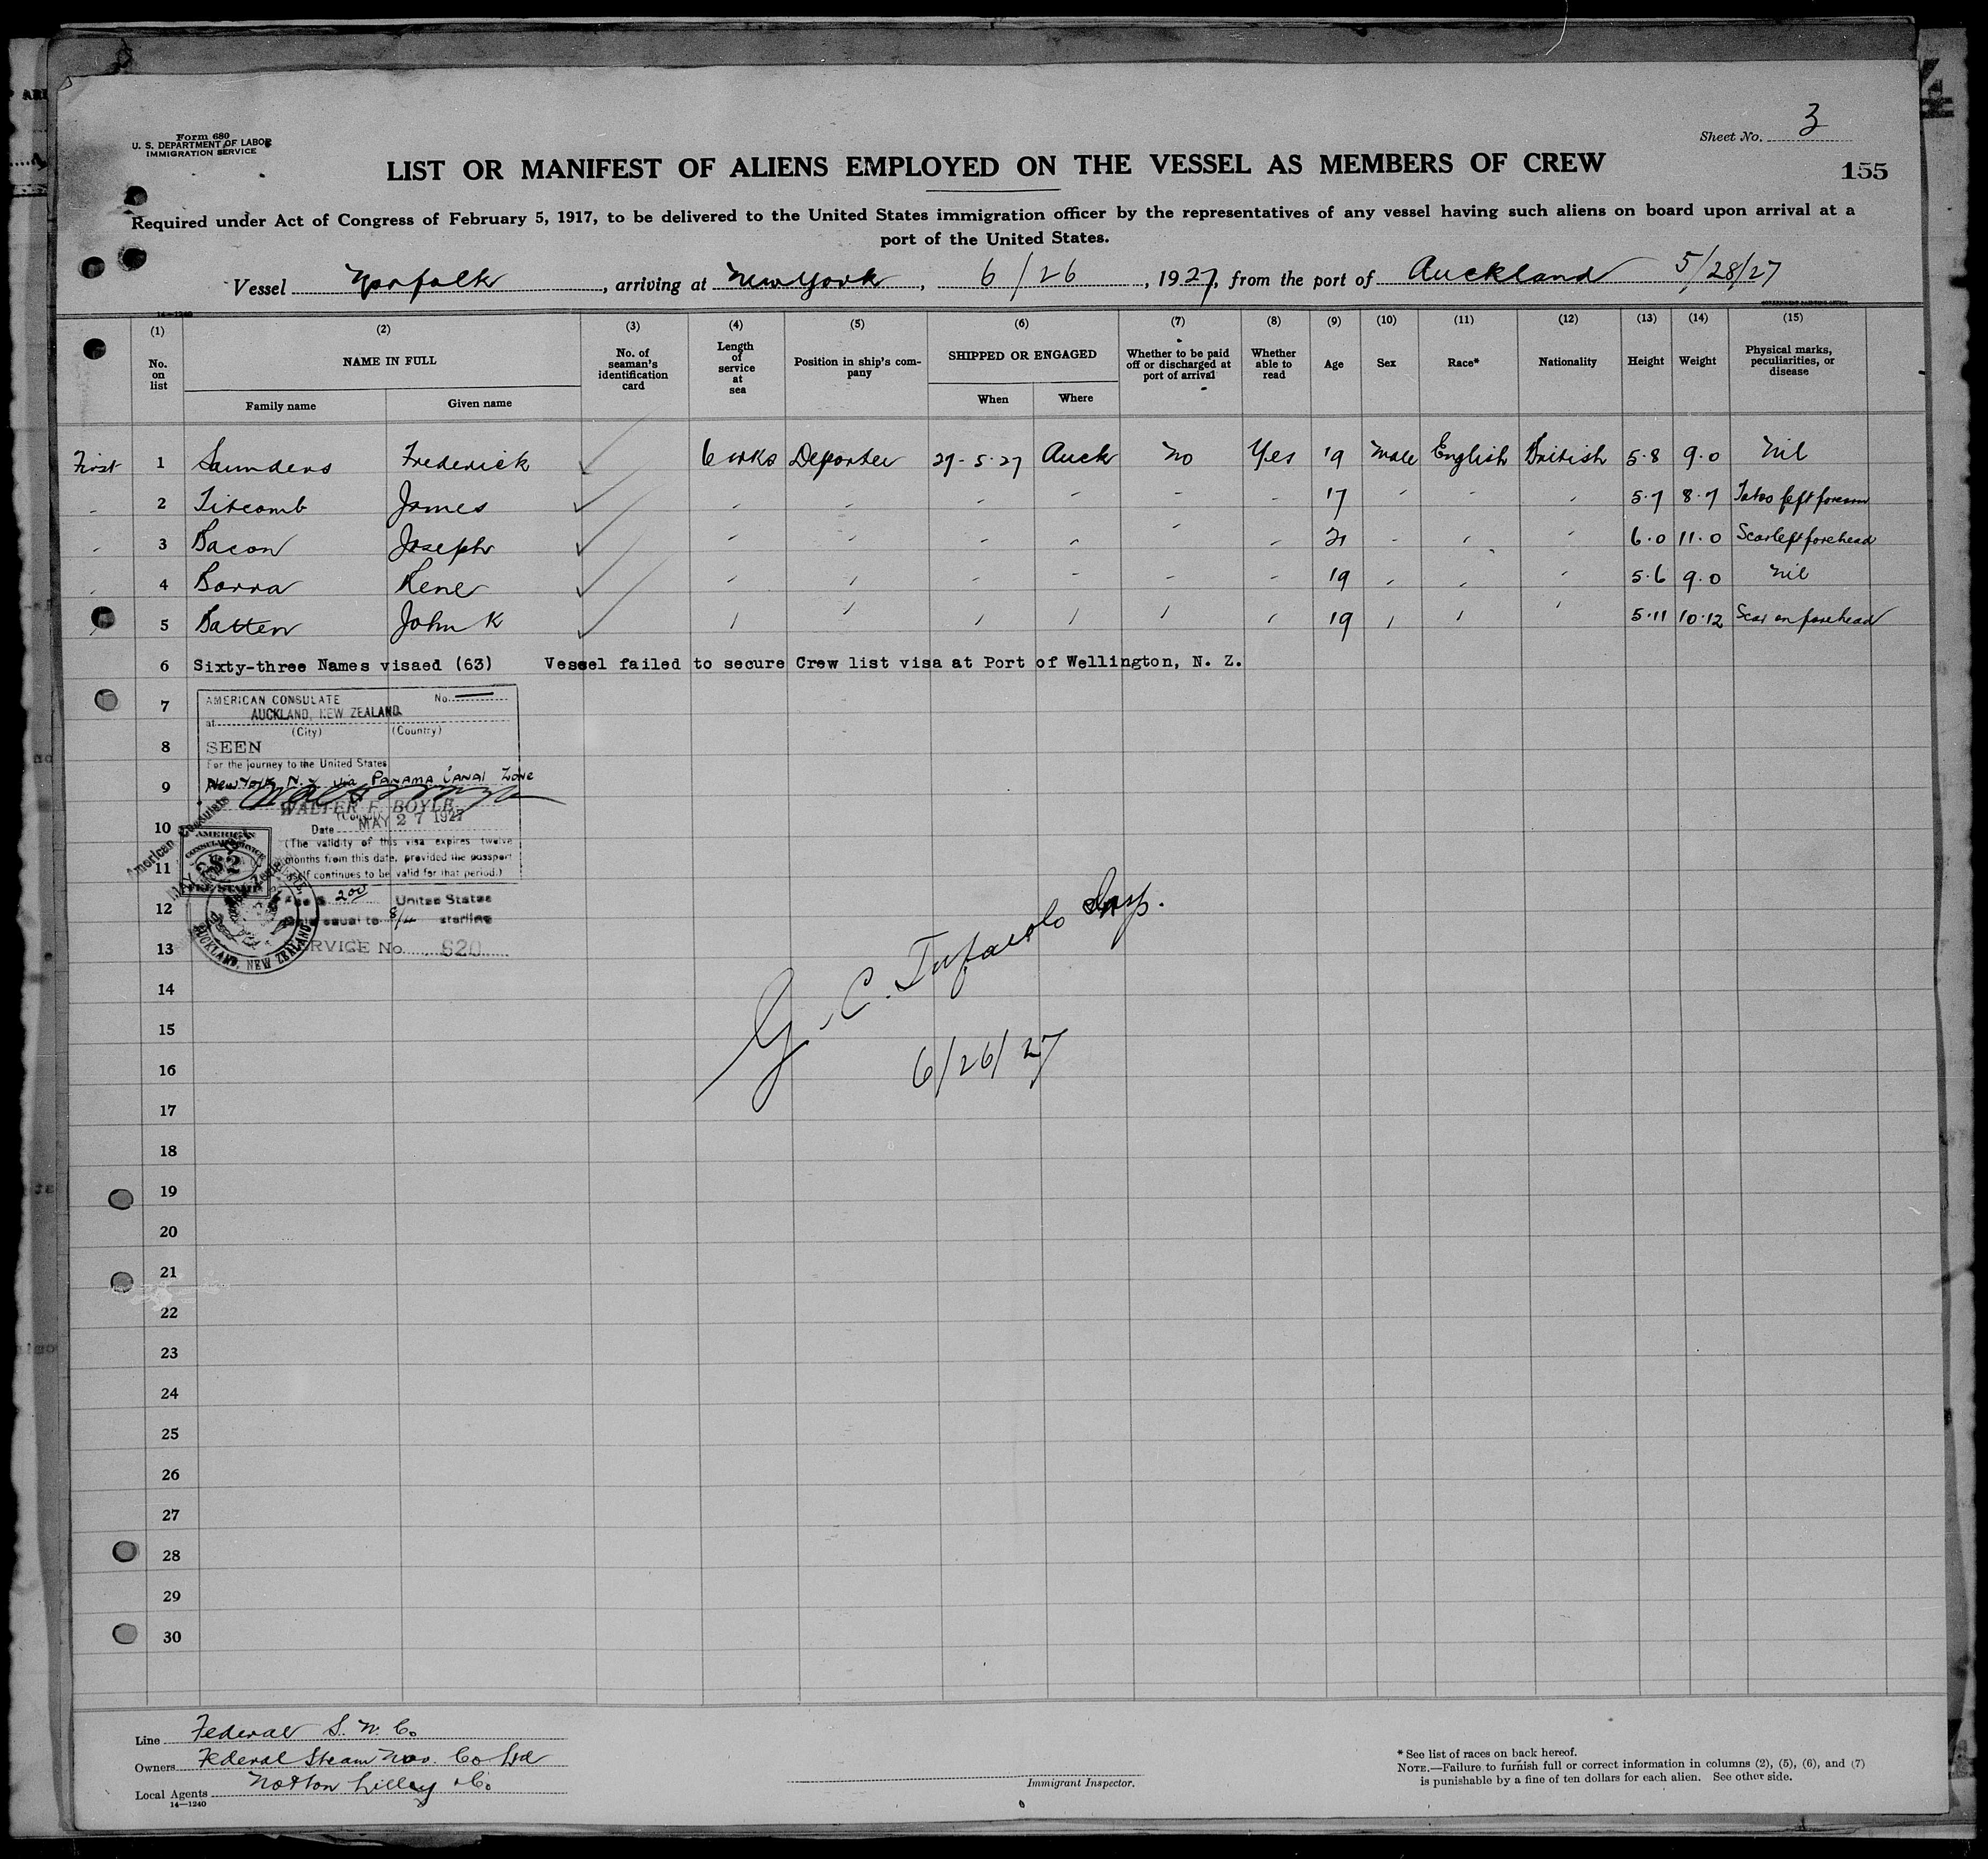 Form 680
U. S. DEPARTMENT OF LABOR
IMMIGRATION SERVICE
Sheet No. 3
LIST OR MANIFEST OF ALIENS EMPLOYED ON THE VESSEL AS MEMBERS OF CREW
155
Required under Act of Congress of February 5, 1917, to be delivered to the United States immigration officer by the representatives of any vessel having such aliens on board upon arrival at a
port of the United States.
Vessel Norfolk, arriving at New York, 6/26, 1927, from the port of Auckland 5/28/27
GOVERNMENT PRINTING OFFICE
14-1240
(1) (2) (3) (4) (5) (6) (7) (8) (9) (10) (11) (12) (13) (14) (15)
No. on list
NAME IN FULL
Family name
Given name
No. of seaman's identification card
Length of service at sea
Position in ship's company
SHIPPED OR ENGAGED
When
Where
Whether to be paid off or discharged at port of arrival
Whether able to read
Age
Sex
Race*
Nationality
Height
Weight
Physical marks, peculiarities, or disease
First 1 Saunders Frederick ✓ 6 wks Deporter 27-5-27 Auck No Yes 19 Male English British 5.8 9.0 Nil
" 2 Titcomb James ✓ " " " " " " 17 " " " 5.7 8.7 Tatoo left forearm
" 3 Bacon Joseph ✓ " " " " " " 21 " " " 6.0 11.0 Scar left forehead
" 4 Barra Rene ✓ " " " " " " 19 " " " 5.6 9.0 Nil
" 5 Batten John K ✓ " " " " " " 19 " " " 5.11 10.12 Scar on forehead
6 Sixty-three Names visaed (63) Vessel failed to secure Crew list visa at Port of Wellington, N. Z.
7
8
9
10
11
12
13
14
15
16
17
18
19
20
21
22
23
24
25
26
27
28
29
30
AMERICAN CONSULATE No.
at AUCKLAND, NEW ZEALAND.
(City) (Country)
SEEN
For the journey to the United States
New York N.Y. via Panama Canal Zone
WALTER F. BOYLE
Date MAY 27 1927
(The validity of this visa expires twelve
months from this date, provided the passport
itself continues to be valid for that period.)
American Consulate
AMERICAN
CONSULAR SERVICE
$2
FEE STAMP
Fee $ 2.00 United States
equal to sterling
SERVICE No. 820
AUCKLAND, NEW ZEALAND
G. C. Tufarolo Insp.
6/26/27
Line Federal S. N. Co
Owners Federal Steam Nav. Co Ltd
Local Agents Norton Lilley & Co
14-1240
Immigrant Inspector.
* See list of races on back hereof.
NOTE.—Failure to furnish full or correct information in columns (2), (5), (6), and (7)
is punishable by a fine of ten dollars for each alien. See other side.